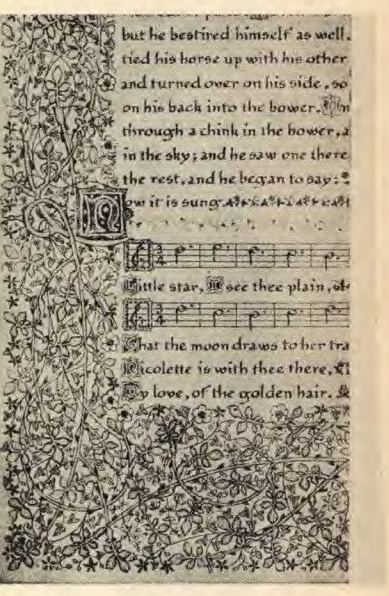 but he bestired himself as well.
tied his horse up with his other
and turned over on his side, so
on his back into the bower. In
through a chink in the bower, a
in the sky; and he saw one there
the rest, and he began to say:
Now it is sung
Little star, I see thee plain,
That the moon draws to her tra
Nicolette is with thee there,
My love, of the golden hair.